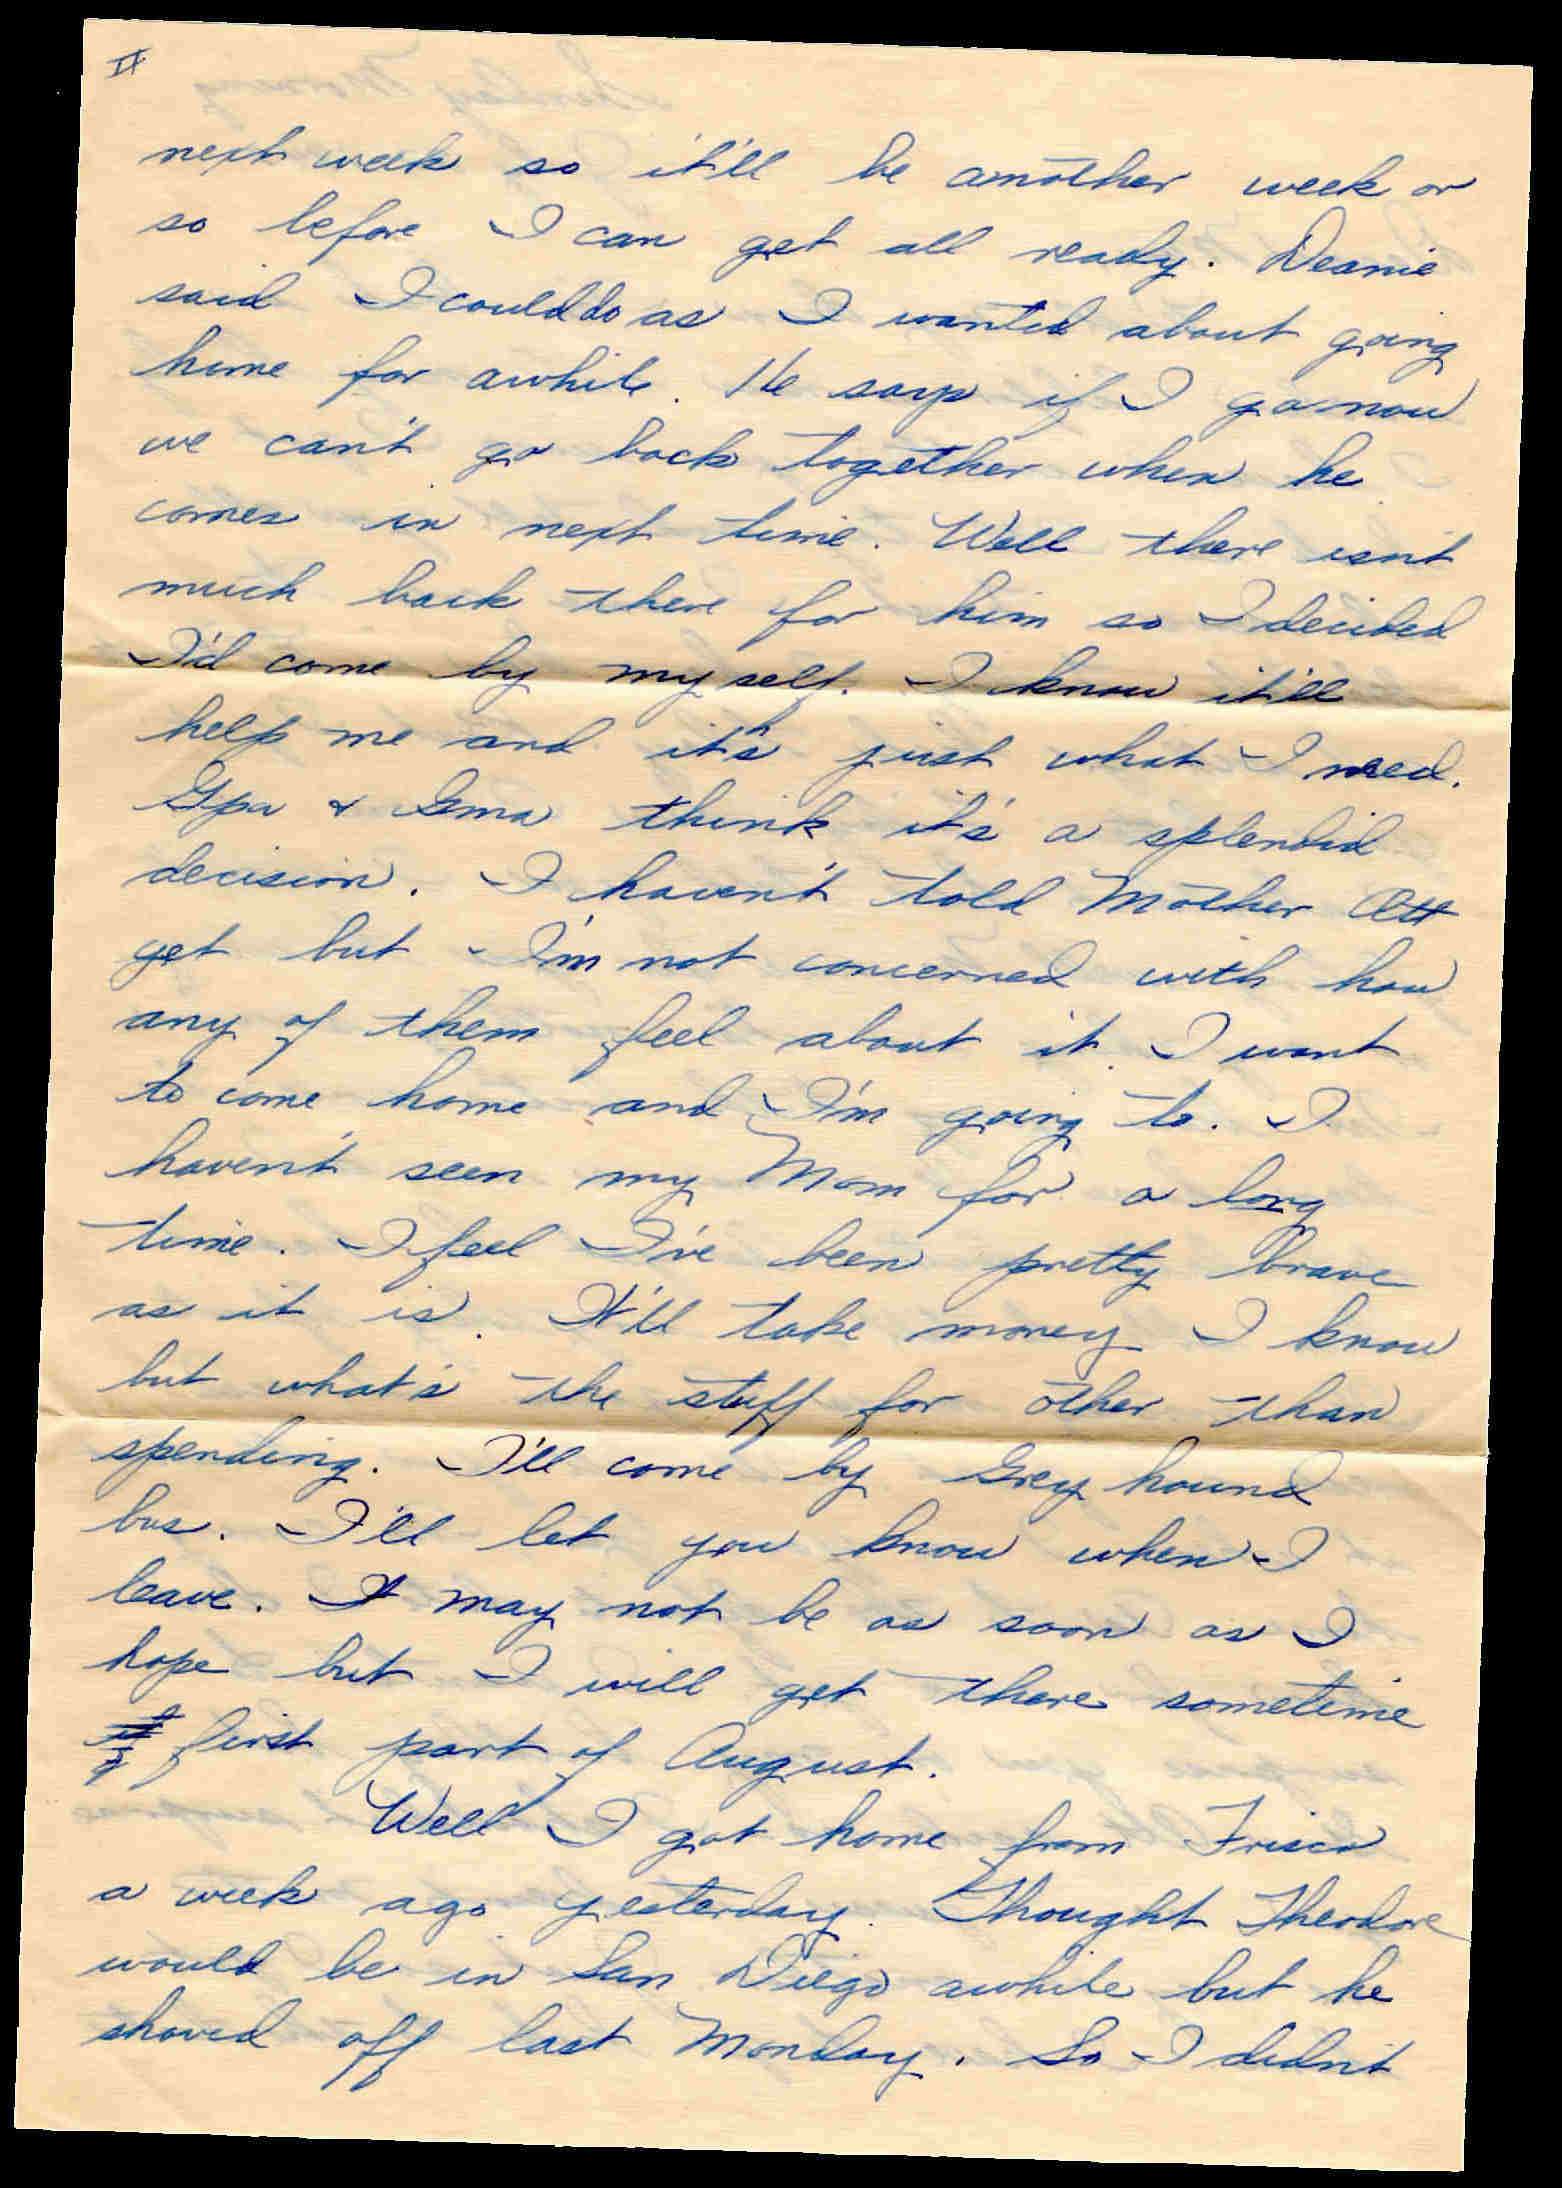 II
next week so it'll be another week or
so before I can get all ready. Deanie
said I could do as I wanted about going
home for awhile. He says if I go now
we can't go back together when he
comes in next time. Well there isn't
much back there for him so I decided
I'd come by myself. I know it'll
help me and it's just what I need.
Gpa & Gma think it's a splendid
decision. I haven't told Mother Ott
yet but I'm not concerned with how
any of them feel about it. I want
to come home and I'm going to. I
haven't seen my Mom for a long
time. I feel I've been pretty brave
as it is. It'll take money I know
but what's the stuff for other than
spending. I'll come by Grey hound
bus. I'll let you know when I
leave. It may not be as soon as I
hope but I will get there sometime
first part of August.
Well I got home from Frisco
a week ago yesterday. Thought Theodore
would be in San Diego awhile but he
shoved off last Monday. So I didn't